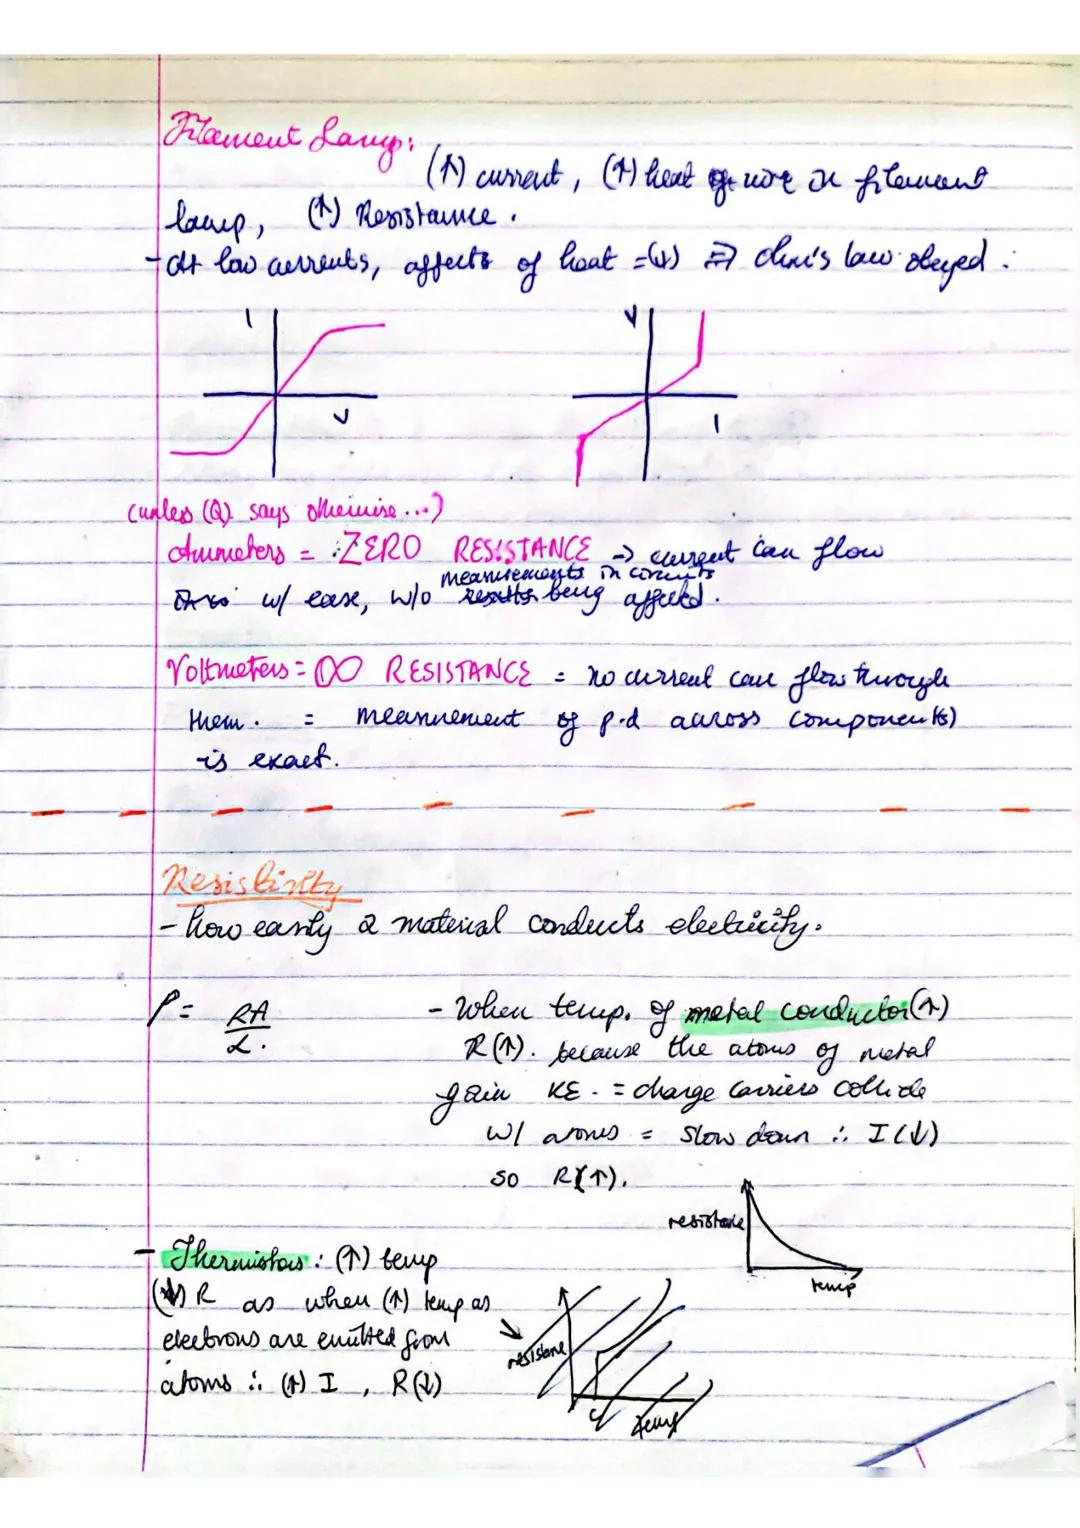 Filament Lamp:
(↑) current, (↑) heat of wire in filament
lamp, (↑) Resistance.
- At low currents, affects of heat = (↓) ⇒ ohm's law obeyed.
I
V
V
I
(unless (Q) says otherwise...)
Ammeters = ZERO RESISTANCE → current can flow
measurements in circuits
w/ ease, w/o results being affected.
Voltmeters = ∞ RESISTANCE = no current can flow through
them. = measurement of p.d across component(s)
is exact.
Resistivity
- how easily a material conducts electricity.
ρ = RA
L.
- When temp. of metal conductor (↑)
R(↑). because the atoms of metal
gain KE. = charge carriers collide
w/ atoms = slow down ∴ I(↓)
so R(↑).
resistance
temp
- Thermistors: (↑) temp
(↓) R as when (↑) temp as
electrons are emitted from
atoms ∴ (↑) I, R(↓)
resistance
temp